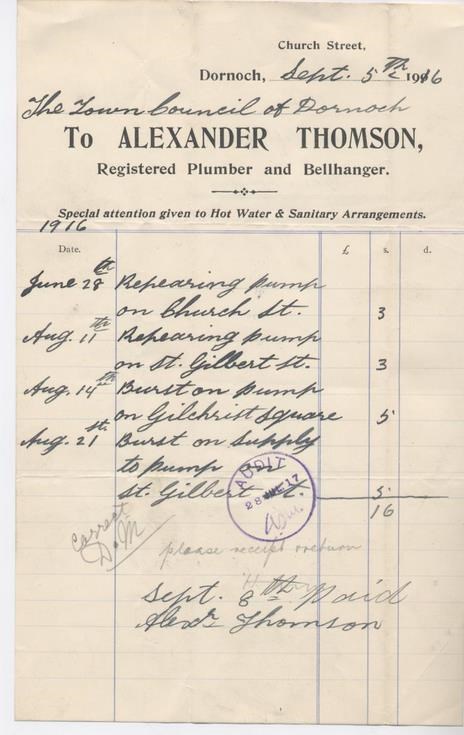 Church Street,
Dornoch, Sept. 5th 1916
The Town Council of Dornoch
To ALEXANDER THOMSON,
Registered Plumber and Bellhanger.
Special attention given to Hot Water & Sanitary Arrangements.
1916
Date. £ s. d.
June 28th Repearing pump
on Church St. 3
Aug. 11th Repearing pump
on St. Gilbert St. 3
Aug. 14th Burst on pump
on Gilchrist Square 5
Aug. 21st. Burst on Supply
to pump
St. Gilbert St. 5
16
AUDIT
28 JUL 17
Correct
D. M
please receipt & return
Sept. 8th Paid
Alexr Thomson